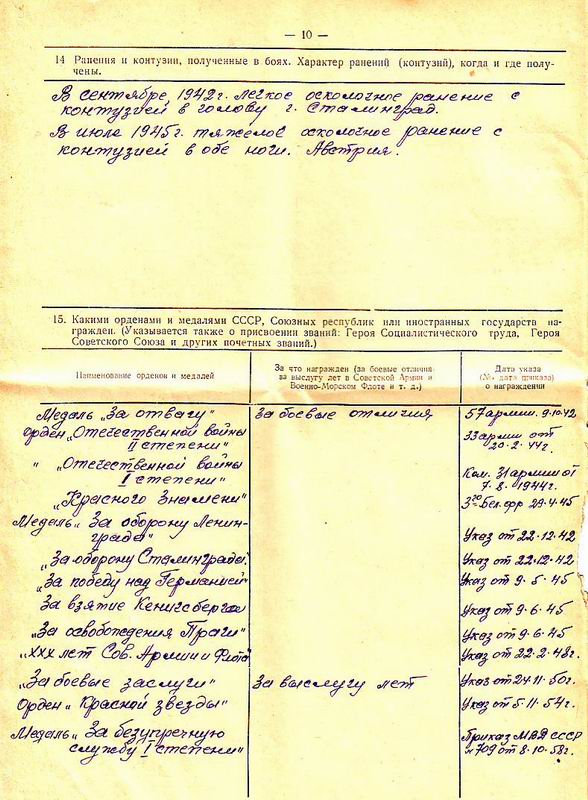 — 10 —
14 Ранения и контузии, полученные в боях. Характер ранений (контузий), когда и где полу-
чены.
В сентябре 1942г. легкое осколочное ранение с
контузией в голову г. Сталинград.
В июле 1945г. тяжелое осколочное ранение с
контузией в обе ноги. Австрия.
15. Какими орденами и медалями СССР, Союзных республик или иностранных государств на-
гражден. (Указывается также о присвоении званий: Героя Социалистического труда, Героя
Советского Союза и других почетных званий.)
Наименование орденов и медалей
За что награжден (за боевые отличия
за выслугу лет в Советской Армии и
Военно-Морском Флоте и т. д.)
Дата указа
(№, дата приказа)
о награждении
Медаль „За отвагу" За боевые отличия 57 армии. 9.10.42
Орден „Отечественной войны
II степени" 33 армии от
20.2.44г.
" „Отечественной войны
I степени" Ком. 31 армии от
7.8.1944г.
„Красного Знамени" 3го Бел. фр 29.4.45
Медаль „За оборону Ленин-
града" Указ от 22.12.42
„За оборону Сталинграда" Указ от 22.12.42
„За победу над Германией" Указ от 9.5.45
За взятие Кенигсберга Указ от 9.6.45
„За освобождения Праги" Указ от 9.6.45
„XXX лет Сов. Армии и Флота" Указ от 22.2.48г.
„За боевые заслуги" За выслугу лет Указ от 24.11.50г.
Орден „Красной звезды" Указ от 5.11.54г.
Медаль „За безупречную
службу I степени" Приказ МВД СССР
№ 709 от 8.10.58г.